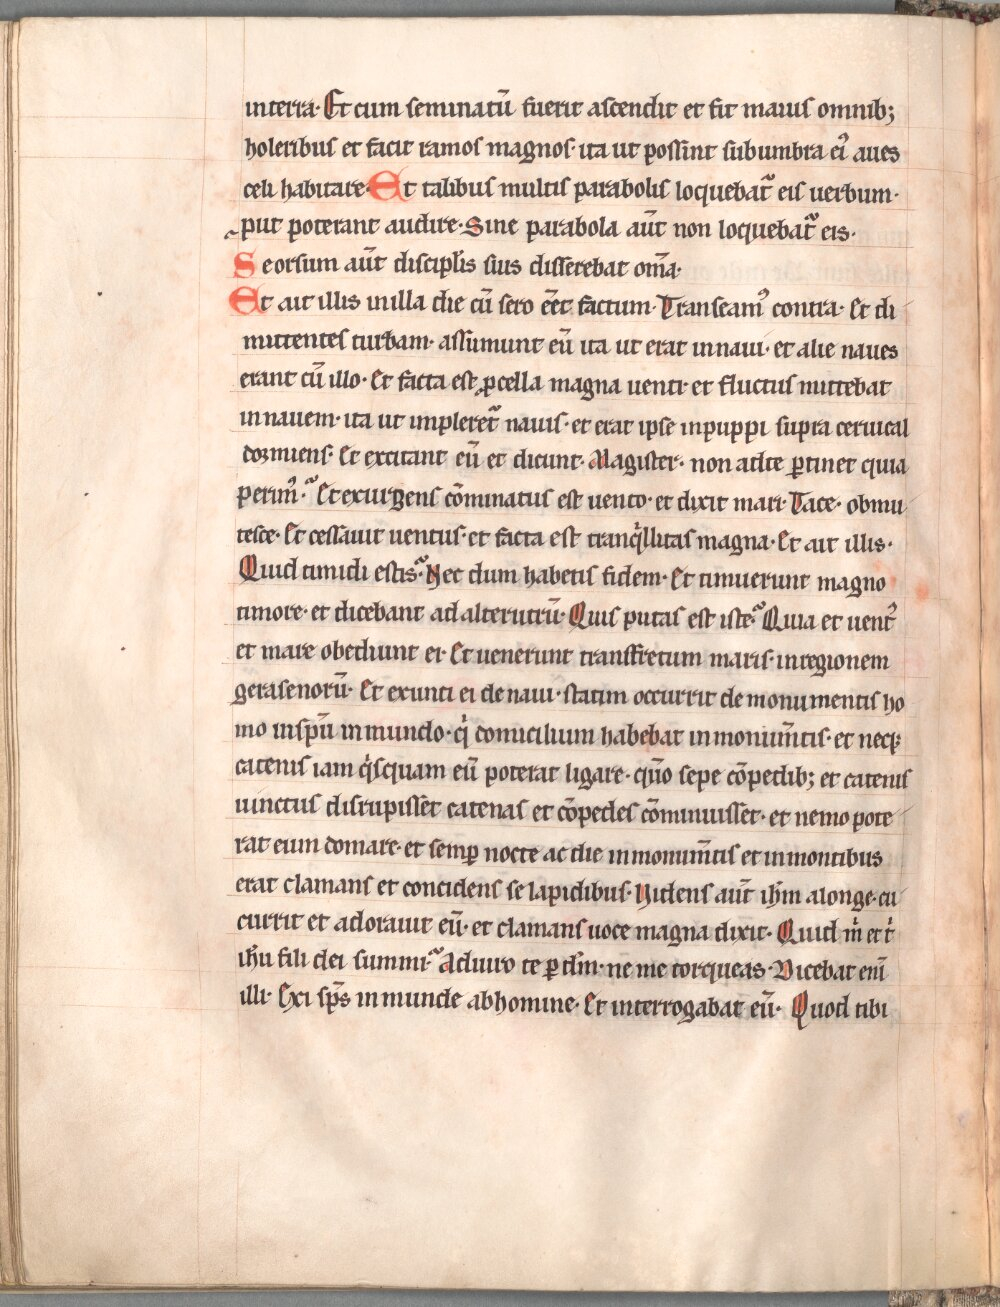 interra· Et cum seminatū fuerit ascendit et fit maius omnib;
holeribus et facit ramos magnos· ita ut possint subumbra ei᾽ aues
celi habitare· Et talibus multis parabolis loquebat᾽ eis uerbum·
put poterant audire· Sine parabola aūt non loquebat᾽ eis·
Seorsum aūt discipl̄is suis disserebat om̄a·
Et ait illis inilla die cū sero eēt factum· Transeam᾽ contra· Et di
mittentes turbam· assumunt eū ita ut erat innaui· et alie naues
erant cū illo· Et facta est ꝓcella magna uenti· et fluctus mittebat
innauem· ita ut impleret᾽ nauis· et erat ipse inpuppi supra ceruical
dormiens· Et excitant eū et dicunt· Magister· non adte ꝑtinet quia
perim᾽· Et exurgens cōminatus est uento· et dixit mari· Tace· obmu
tesce· Et cessauit uentus· et facta est tranqͥllitas magna· Et ait illis·
Quid timidi estis· Nec dum habetis fidem· Et timuerunt magno
timore· et dicebant ad alterutrū· Quis putas est iste· Quia et uent᾽
et mare obediunt ei· Et uenerunt transfretum maris· inregionem
gerasenorū· Et exunti ei de naui· statim occurrit de monumentis ho
mo inspū inmundo· qͥ domicilium habebat inmonium̄tis· et neqꝫ
catenis iam qͥsquam eū poterat ligare· qm̄o sepe cōpedib; et catenis
uinctus disrupisset catenas et cōpedes cōminuisset· et nemo pote
rat eum domare· et semꝑ nocte ac die inmonum̄tis et inmontibus
erat clamans et concidens se lapidibus· Uidens aūt ih̄m alonge· cu
currit et adorauit eū· et clamans uoce magna dixit· Quid mͥ et tͥ
ih̄u fili dei summi· Adiuro te ꝑ dm̄· ne me torqueas· Dicebat eni̅
illi· Exi sp̄s inmunde abhomine· Et interrogabat eū· Quod tibi